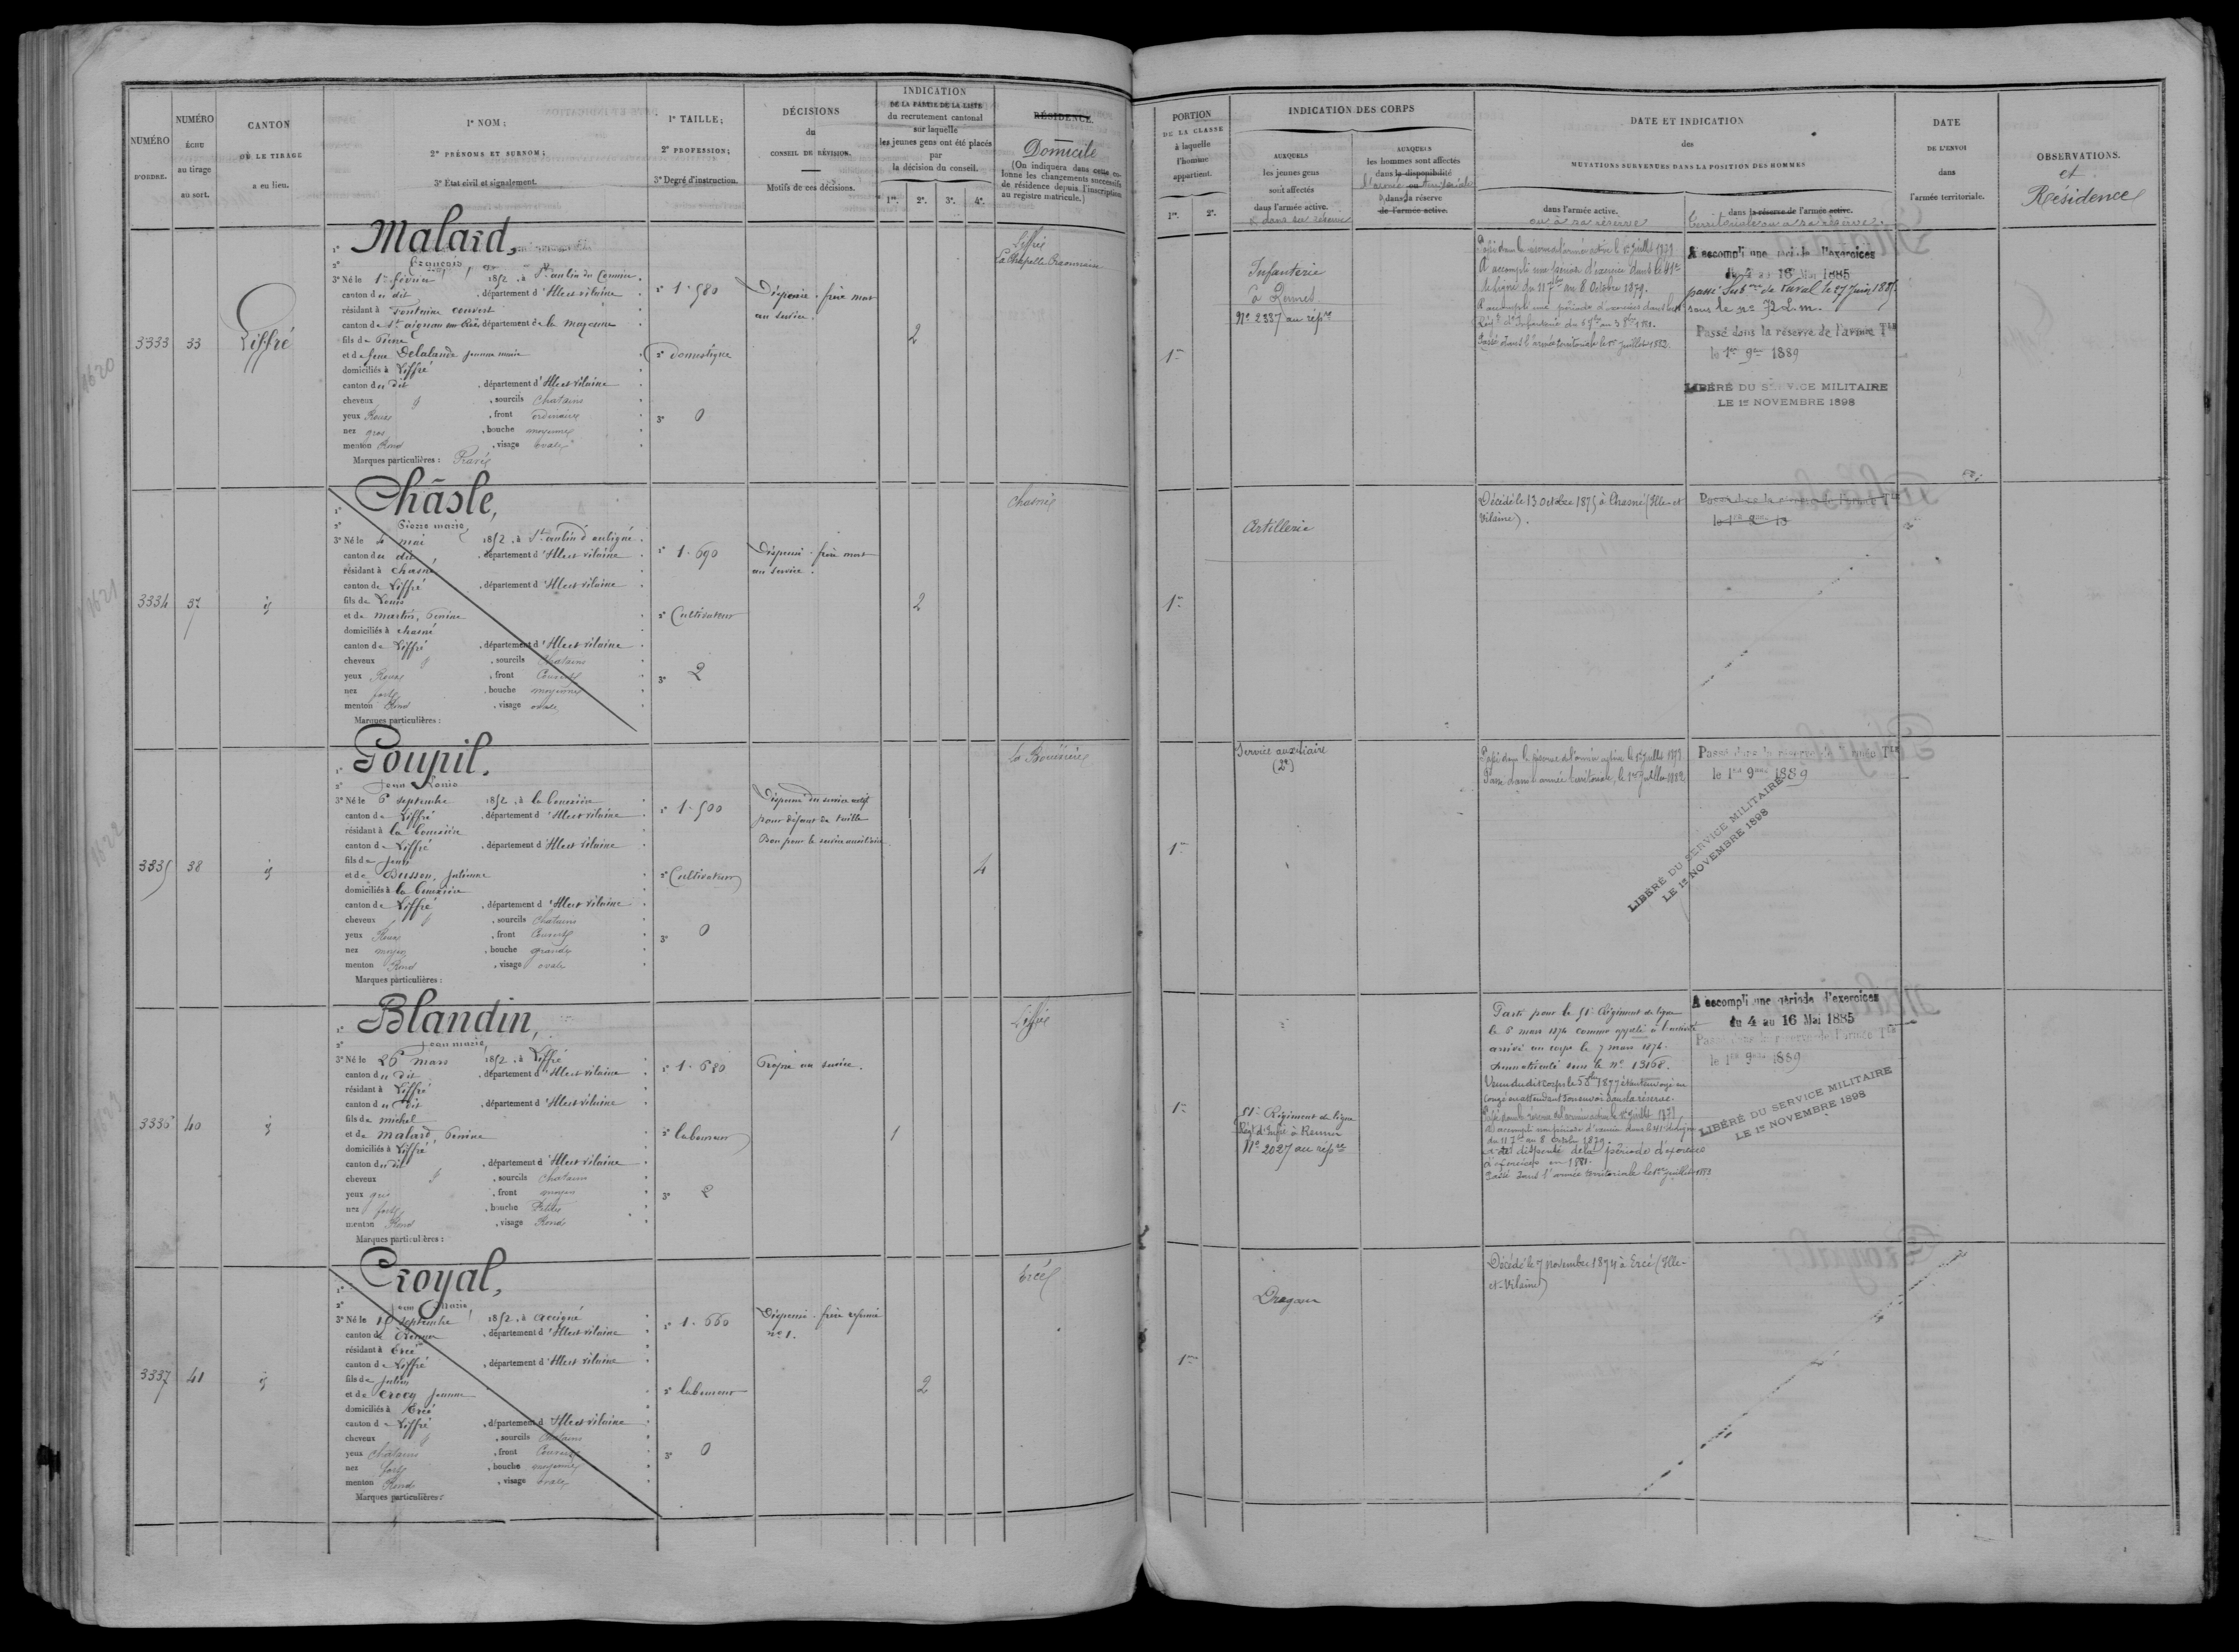 NUMÉRO
D'ORDRE.
NUMÉRO
ÉCHU
au tirage
au sort.
CANTON
OÙ LE TIRAGE
a eu lieu.
1° NOM;
2° PRÉNOMS ET SURNOM;
3° État civil et signalement.
1° TAILLE;
2° PROFESSION;
3° Degré d'instruction.
DÉCISIONS
du
CONSEIL DE RÉVISION.
Motifs de ces décisions.
INDICATION
DE LA PARTIE DE LA LISTE
du recrutement cantonal
sur laquelle
les jeunes gens ont été placés
par
la décision du conseil.
1re. 2e. 3e. 4e.
RÉSIDENCE.
Domicile
(On indiquera dans cette co-
lonne les changements successifs
de résidence depuis l'inscription
au registre matricule.)
PORTION
DE LA CLASSE
à laquelle
l'homme
appartient.
1re. 2e.
INDICATION DES CORPS
AUXQUELS
les jeunes gens
sont affectés
dans l'armée active.
& dans sa réserve
AUXQUELS
les hommes sont affectés
dans la disponibilité
l'armée ou territoriale
& dans la réserve
de l'armée active.
DATE ET INDICATION
des
MUTATIONS SURVENUES DANS LA POSITION DES HOMMES
dans l'armée active.
ou à sa réserve
dans la réserve de l'armée active.
territoriale ou a sa réserve.
DATE
DE L'ENVOI
dans
l'armée territoriale.
OBSERVATIONS.
et
Résidence
3333 33 Liffré
1° Malard,
2° François
3° Né le 1er février 1852, à St aubin du Cormier
canton du dit, département d'Ille et vilaine
résidant à fontaine couvert
canton de St aignan sur Roë, département de la mayenne
fils de Pierre
et de feue Delalande jeanne marie
domiciliés à Liffré
canton du dit, département d'Ille et vilaine
cheveux &, sourcils Chatains
yeux Roux, front ordinaire
nez gros, bouche moyenne
menton Rond, visage ovale
Marques particulières : Gravé
1° 1.580
2° domestique
3° 0
Dispensé. frère mort
au service.
2
Liffré
La Chapelle
1re
Infanterie
à Rennes
N° 2337 au répre
Passé dans la réserve de l'armée active le 1er Juillet 1878.
A accompli une période d'exercice dans le 41e
de ligne du 11 7bre au 8 Octobre 1879.
A accompli une période d'exercice dans le
Passé dans l'armée territoriale le 1er Juillet 1882.
A accompli une période d'exercices
du 4 au 16 Mai 1885
passé Subon de Laval le 27 Juin 1885
sous le n° 72 L.m.
Passé dans la réserve de l'armée Tle
le 1er 9bre 1889
LIBÉRÉ DU SERVICE MILITAIRE
LE 1er NOVEMBRE 1898
3334 37 id
1° Châsle,
2° Pierre marie,
3° Né le 4 mai 1852, à St aubin d'aubigné
canton du dit, département d'Ille et vilaine
résidant à chasné
canton de Liffré, département d'Ille et vilaine
fils de Louis
et de martin, Perrine
domiciliés à chasné
canton de Liffré, département d'Ille et vilaine
cheveux &, sourcils Chatains
yeux Roux, front Couvert
nez fort, bouche moyenne
menton Rond, visage ovale
Marques particulières :
1° 1.690
2° Cultivateur
3° 2
Dispensé. frère mort
au service.
2
Chasné
1re
Artillerie
Décédé le 13 Octobre 1875 à Chasné (Ille-et
Vilaine).
Passé dans la réserve de l'armée Tle
le 1er 9bre 18
3335 38 id
1° Poupil.
2° Jean Louis
3° Né le 6 septembre 1852, à la bouexière
canton de Liffré, département d'Ille et vilaine
résidant à la bouexière
canton de Liffré, département d'Ille et vilaine
fils de jean
et de Busson, julienne
domiciliés à la bouexière
canton de Liffré, département d'Ille et vilaine
cheveux &, sourcils Chatains
yeux Roux, front Couvert
nez moyen, bouche grande
menton Rond, visage ovale
Marques particulières :
1° 1.500
2° Cultivateur
3° 0
Dispensé du service actif
pour défaut de taille
Bon pour le service auxiliaire.
4
La Bouexière
1re
Service auxiliaire
(2e)
Passé dans la réserve de l'armée active le 1er Juillet 1878
Passé dans l'armée territoriale, le 1er Juillet 1882
Passé dans la réserve de l'armée Tle
le 1er 9bre 1889
LIBÉRÉ DU SERVICE MILITAIRE
LE 1er NOVEMBRE 1898
3336 40 id
1° Blandin,
2° Jean marie,
3° Né le 26 mars 1852, à Liffré
canton du dit, département d'Ille et vilaine
résidant à Liffré
canton du dit, département d'Ille et vilaine
fils de michel
et de malard, Perrine
domiciliés à Liffré
canton du dit, département d'Ille et vilaine
cheveux &, sourcils Chatains
yeux gris, front moyen
nez fort, bouche Petite
menton Rond, visage Rond
Marques particulières :
1° 1.680
2° laboureur
3° 2
Propre au service.
1
Liffré
1re
51e Régiment de ligne
Régt d'Infie à Rennes
N° 2027 au répre
Parti pour le 51e Régiment de ligne
le 5 mars 1874 comme appelé à l'activité
arrivé au corps le 7 mars 1874.
Immatriculé sous le n° 13168.
Venu du dit corps le 5 8bre 1877 étant envoyé en
congé en attendant son envoi dans la réserve.
Passé dans la réserve de l'armée active le 1er Juillet 1878
A accompli une période d'exercice dans le 41e de ligne
du 11 7bre au 8 octobre 1879.
a été dispensé de la période d'exercice
d'exercices en 1881.
Passé dans l'armée territoriale le 1er Juillet 1882
A accompli une période d'exercices
du 4 au 16 Mai 1885
Passé dans la réserve de l'armée Tle
le 1er 9bre 1889
LIBÉRÉ DU SERVICE MILITAIRE
LE 1er NOVEMBRE 1898
3337 41 id
1° Croyal,
2° Jean Marie,
3° Né le septembre 1852, à acigné
canton de Rennes, département d'Ille et vilaine
résidant à Ercé
canton de Liffré, département d'Ille et vilaine
fils de julien
et de crocq jeanne
domiciliés à Ercé
canton de Liffré, département d'Ille et vilaine
cheveux &, sourcils Chatains
yeux Chatains, front Couvert
nez fort, bouche moyenne
menton Rond, visage ovale
Marques particulières :
1° 1.660
2° laboureur
3° 0
Dispensé. frère réformé
n° 1.
2
Ercé
1re
Dragons
Décédé le 7 novembre 1874 à Ercé (Ille-
et-Vilaine)
1620
1621
1622